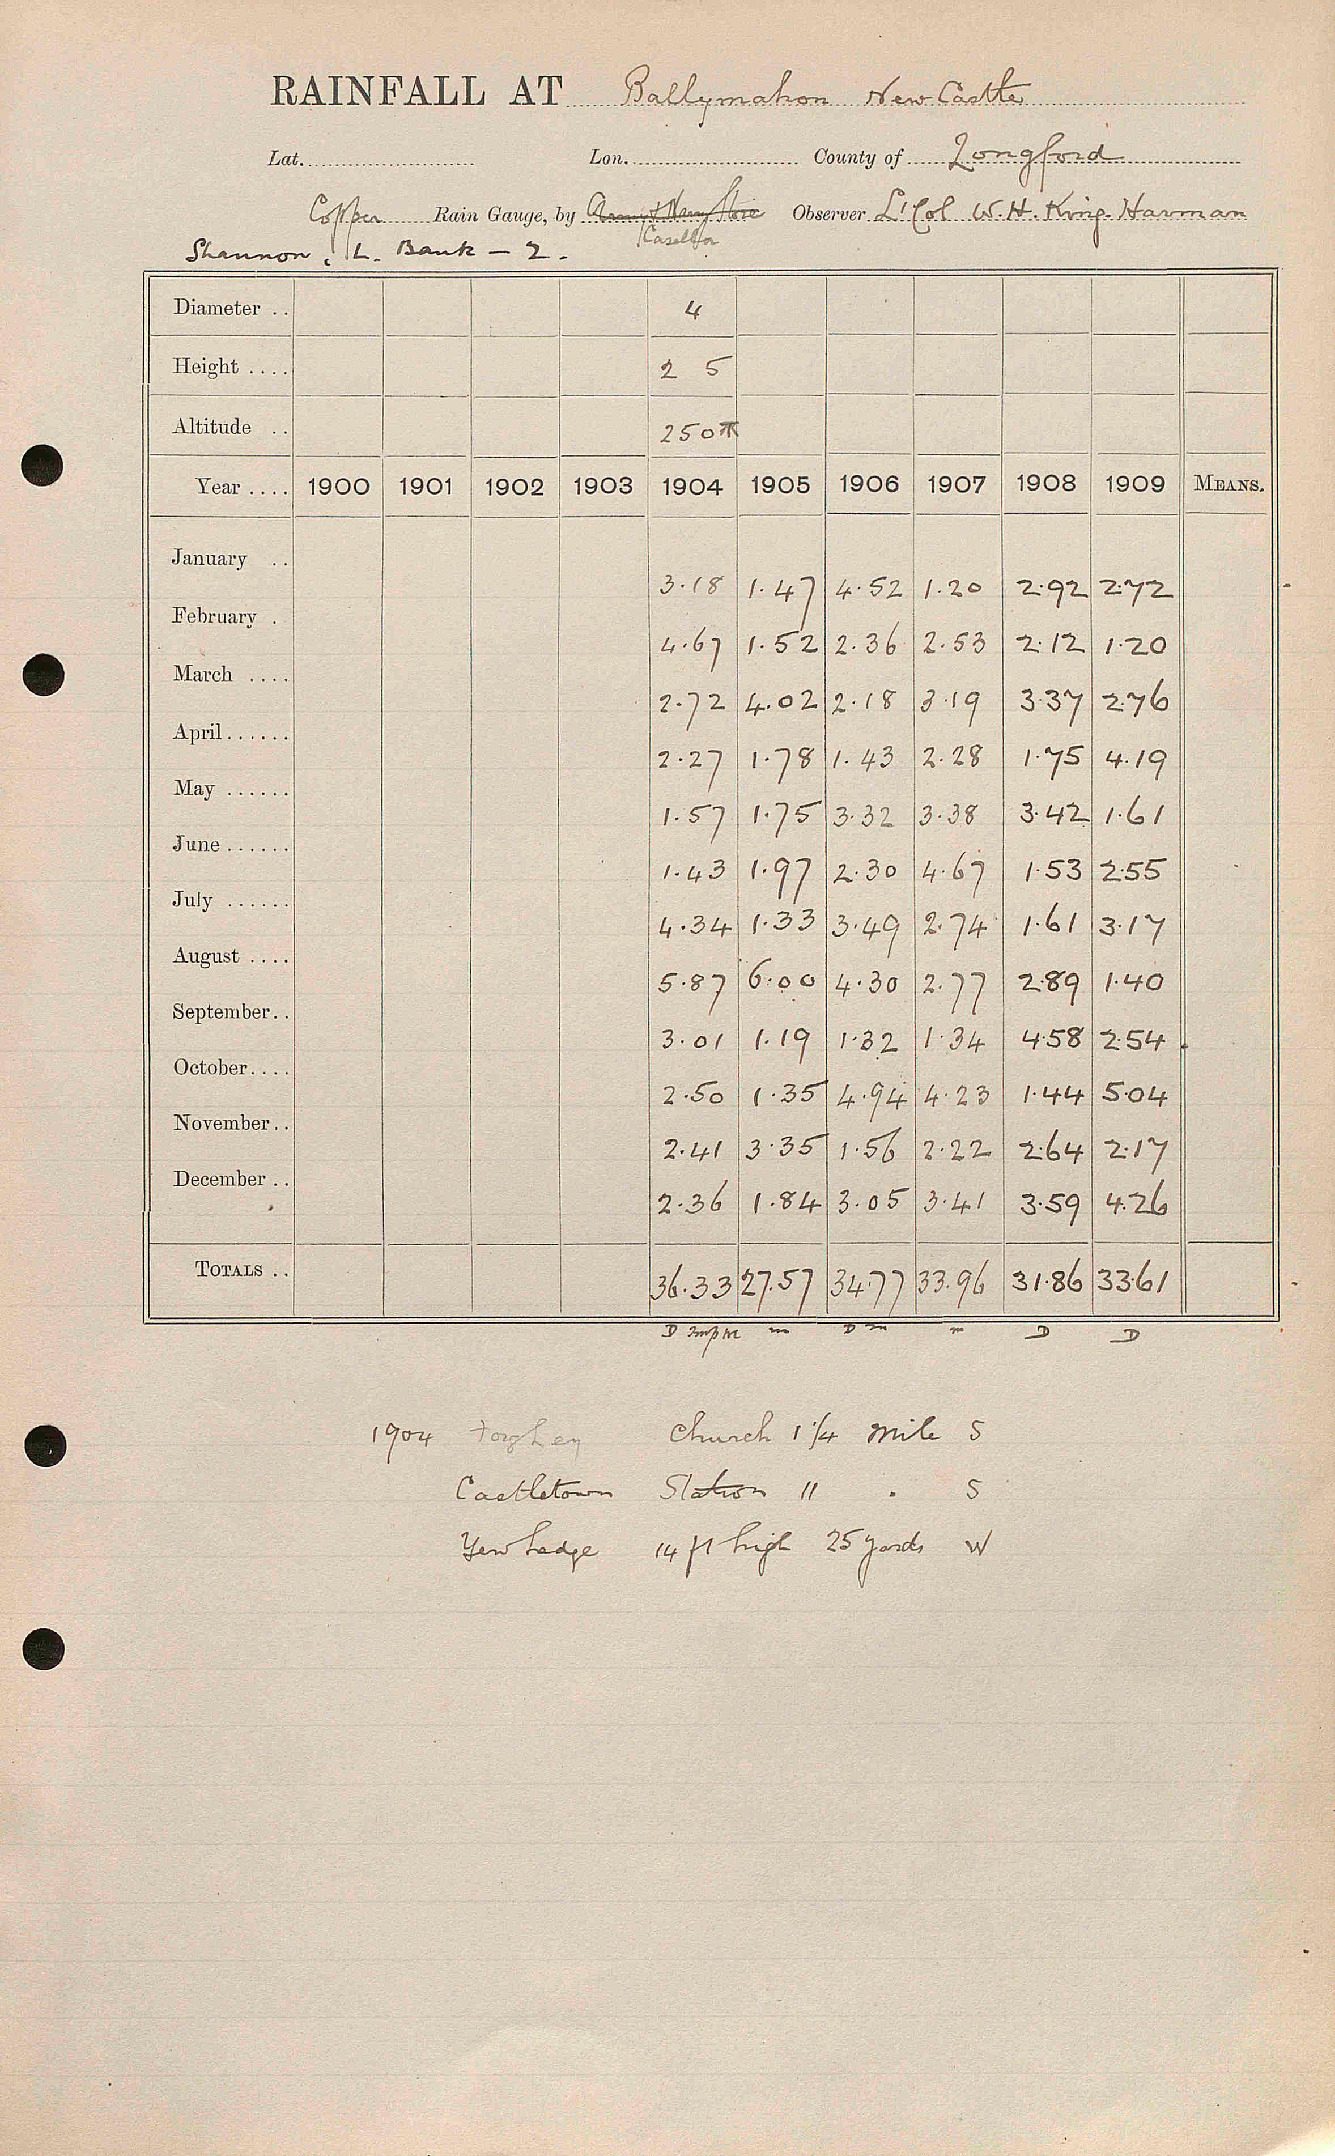 RAINFALL AT Ballymahon New Castle
Lat. Lon. County of Longford
Copper Rain Gauge, by Army & Navy Store Observer Lt Col W. H. King-Harman
Casella
Shannon, L. Bank – 2.
Diameter .. 4
Height .... 2 5
Altitude .. 250 ft
Year .... 1900 1901 1902 1903 1904 1905 1906 1907 1908 1909 MEANS.
January .. 3.18 1.47 4.52 1.20 2.92 2.72
February . 4.67 1.52 2.36 2.53 2.12 1.20
March .... 2.72 4.02 2.18 3.19 3.37 2.76
April...... 2.27 1.78 1.43 2.28 1.75 4.19
May ...... 1.57 1.75 3.32 3.38 3.42 1.61
June...... 1.43 1.97 2.30 4.67 1.53 2.55
July ...... 4.34 1.33 3.49 2.74 1.61 3.17
August .... 5.87 6.00 4.30 2.77 2.89 1.40
September.. 3.01 1.19 1.32 1.34 4.58 2.54
October.... 2.50 1.35 4.94 4.23 1.44 5.04
November.. 2.41 3.35 1.56 2.22 2.64 2.17
December .. 2.36 1.84 3.05 3.41 3.59 4.26
TOTALS .. 36.33 27.57 34.77 33.96 31.86 33.61
D m D m m D D
1904 Forghey Church 1 1/4 mile S
Castletown Station 11 . S
Yew hedge 14 ft high 25 yards W